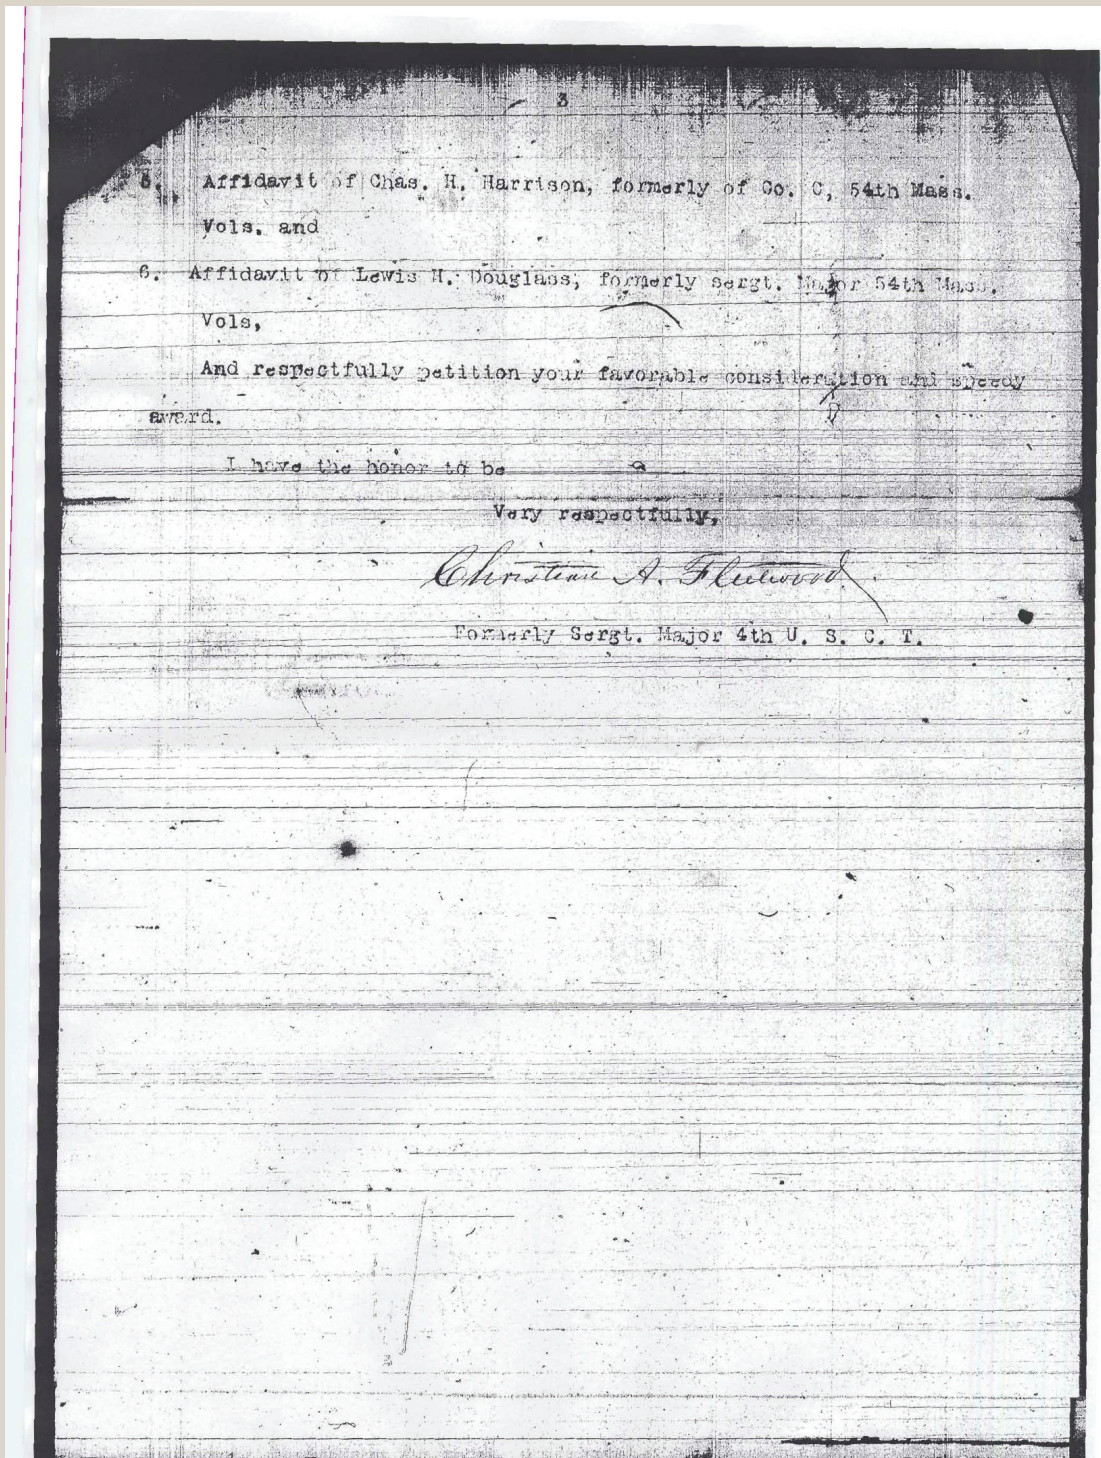 3
5. Affidavit of Chas. H. Harrison, formerly of Co. C, 54th Mass.
Vols. and
6. Affidavit of Lewis H. Douglass, formerly sergt. Major 54th Mass.
Vols,
And respectfully petition your favorable consideration and speedy
award.
I have the honor to be
Very respectfully,
Christian A. Fleetwood
Formerly Sergt. Major 4th U. S. C. T.